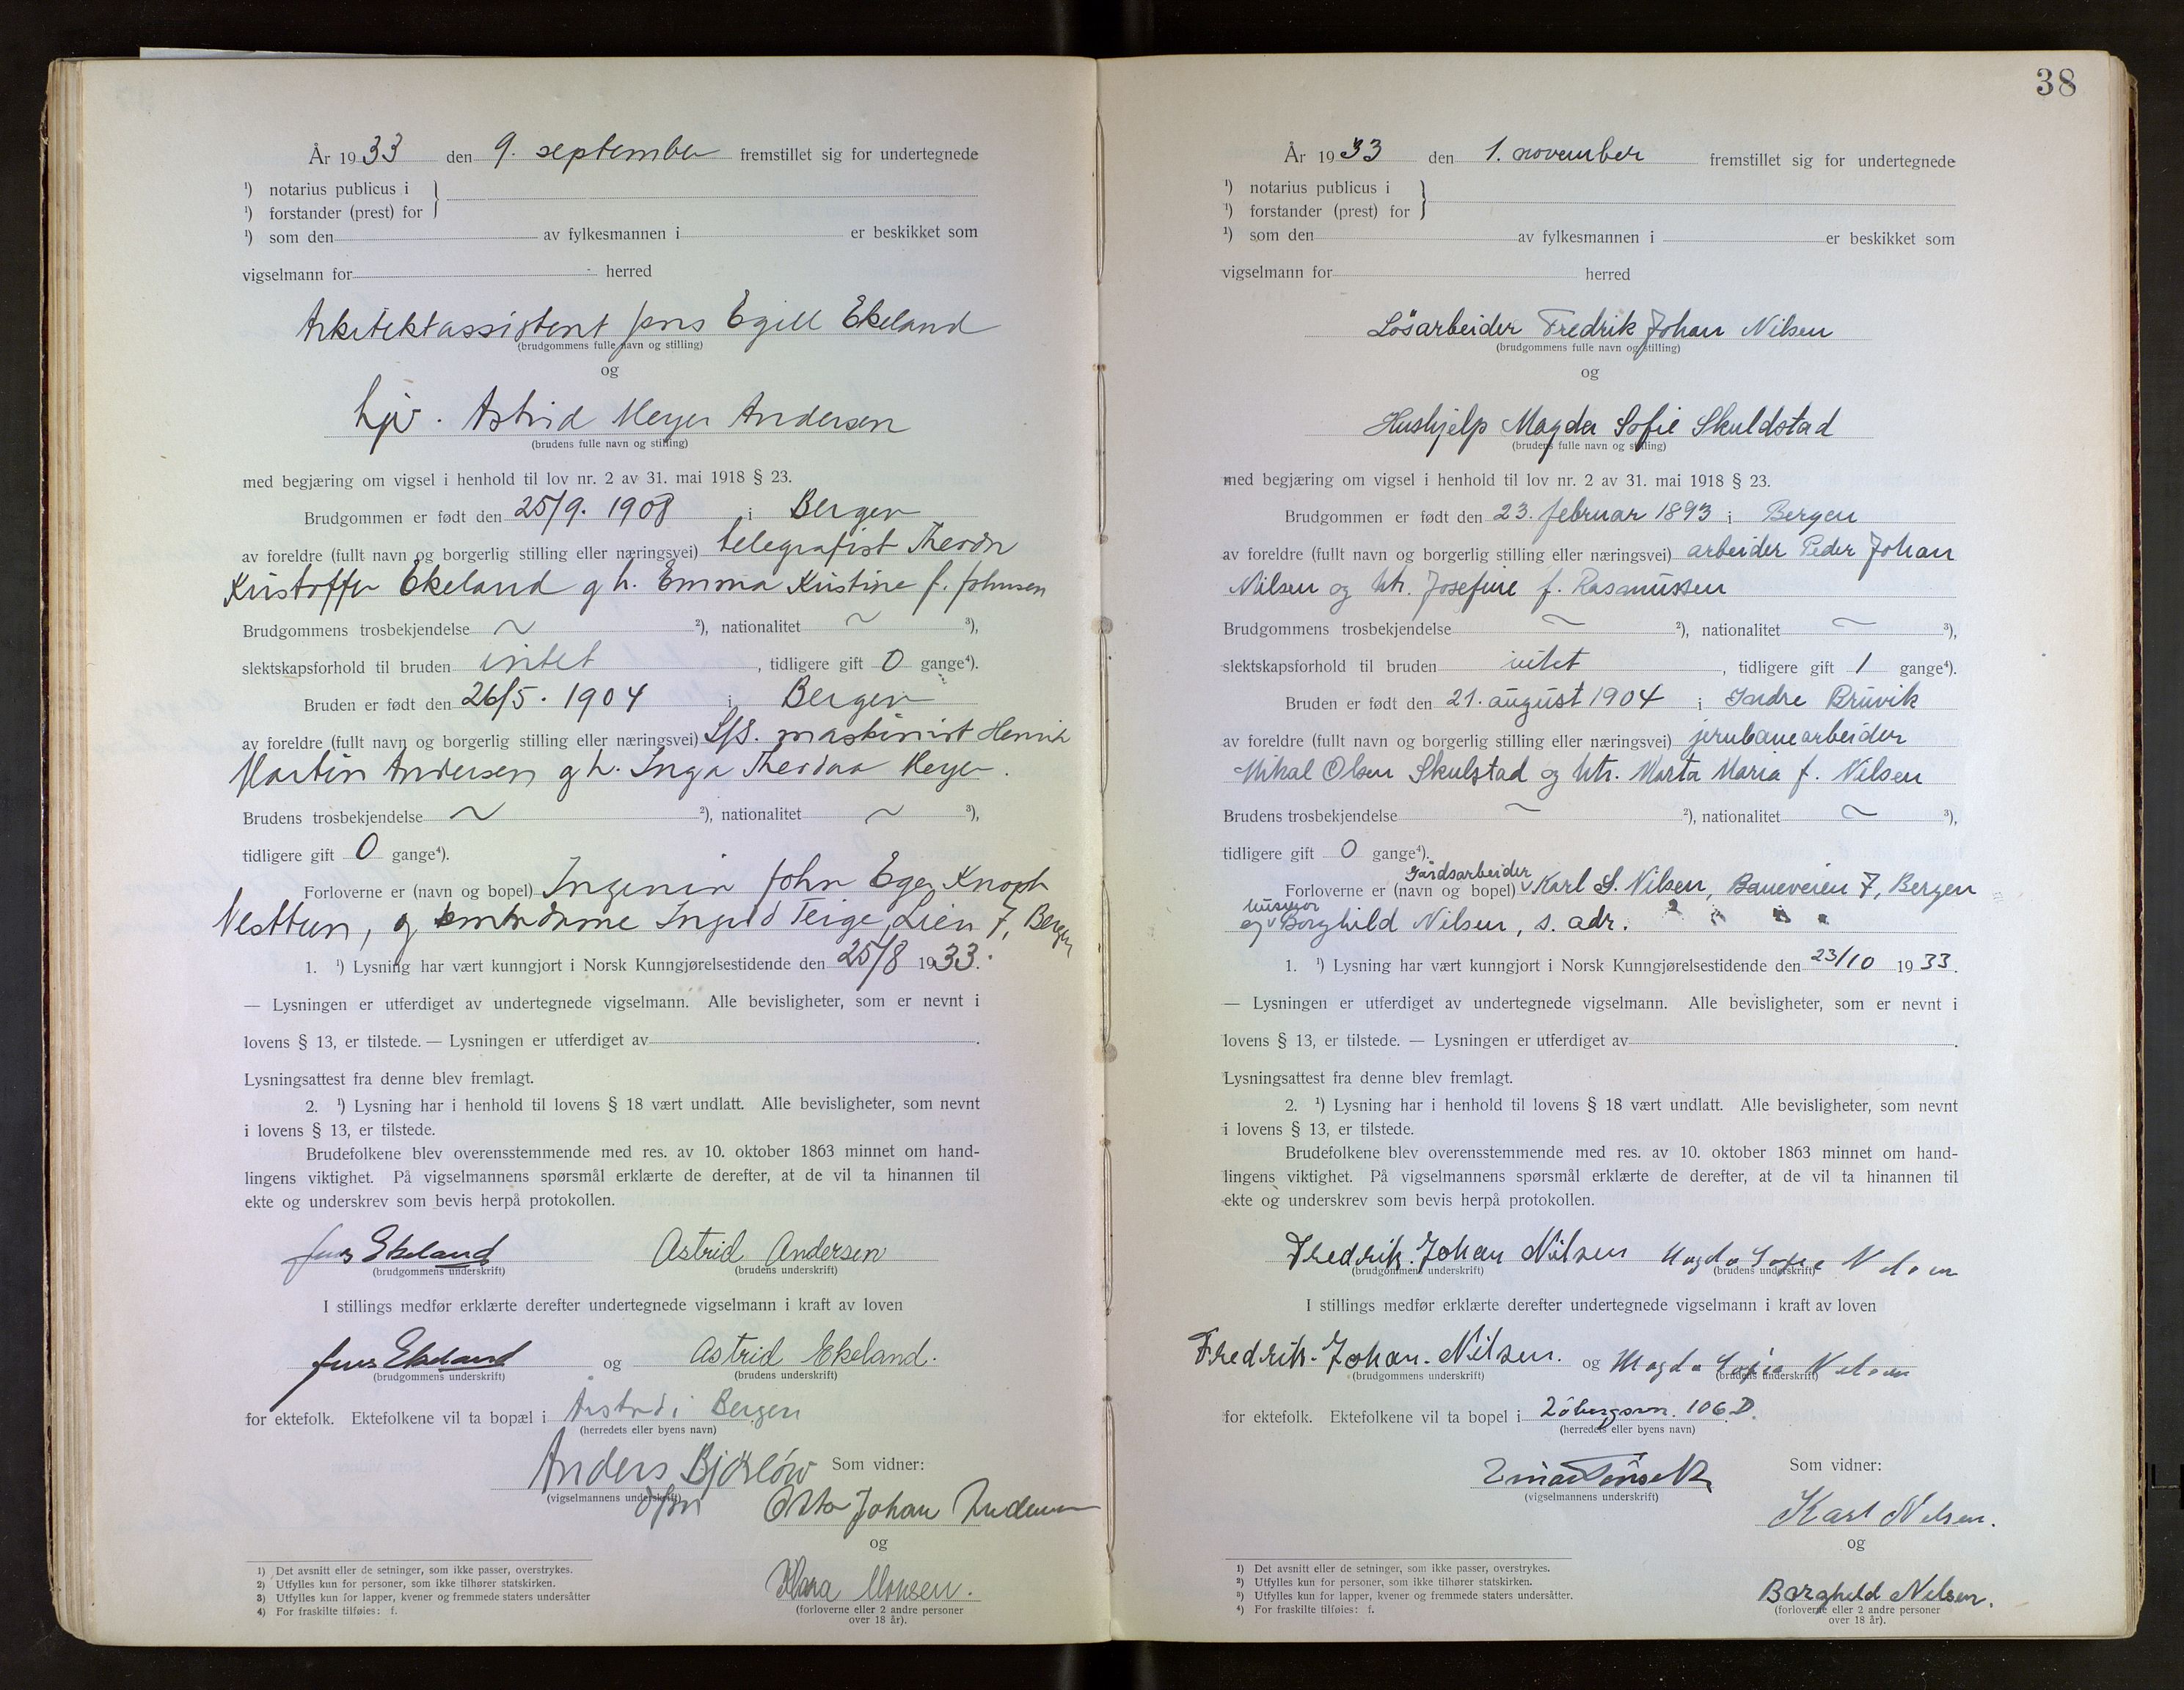 År 1933 den 9. september fremstillet sig for undertegnede
¹) notarius publicus i
¹) forstander (prest) for
¹) som den av fylkesmannen i er beskikket som
vigselmann for herred
Arkitektassistent Jens Egill Ekeland
(brudgommens fulle navn og stilling)
og
Astrid Meyer Andersen
(brudens fulle navn og stilling)
med begjæring om vigsel i henhold til lov nr. 2 av 31. mai 1918 § 23.
Brudgommen er født den 25/9. 1908 i Bergen
av foreldre (fullt navn og borgerlig stilling eller næringsvei) telegrafist
Kristoffer Ekeland g h. Emma Kristine f. Johnsen
Brudgommens trosbekjendelse ~ ²), nationalitet ~ ³),
slektskapsforhold til bruden intet , tidligere gift 0 gange⁴).
Bruden er født den 26/5. 1904 i Bergen
av foreldre (fullt navn og borgerlig stilling eller næringsvei) S/S. maskinist Henrik
Martin Andersen g h. Inga Meyer.
Brudens trosbekjendelse ~ ²), nationalitet ~ ³),
tidligere gift 0 gange⁴).
Forloverne er (navn og bopel) Ingeniør John Knoph
Nesttun, og Ingrid Teige, Lien 7, Bergen
1. ¹) Lysning har vært kunngjort i Norsk Kunngjørelsestidende den 25/8 1933.
— Lysningen er utferdiget av undertegnede vigselmann. Alle bevisligheter, som er nevnt i
lovens § 13, er tilstede. — Lysningen er utferdiget av .
Lysningsattest fra denne blev fremlagt.
2. ¹) Lysning har i henhold til lovens § 18 vært undlatt. Alle bevisligheter, som nevnt
i lovens § 13, er tilstede.
Brudefolkene blev overensstemmende med res. av 10. oktober 1863 minnet om hand-
lingens viktighet. På vigselmannens spørsmål erklærte de derefter, at de vil ta hinannen til
ekte og underskrev som bevis herpå protokollen.
Jens Ekeland Astrid Andersen
(brudgommens underskrift) (brudens underskrift)
I stillings medfør erklærte derefter undertegnede vigselmann i kraft av loven
Jens Ekeland og Astrid Ekeland.
(brudgommens underskrift) (brudens underskrift)
for ektefolk. Ektefolkene vil ta bopæl i Årstad i Bergen
(herredets eller byens navn)
Anders Som vidner:
(vigselmannens underskrift)
Otto Johan Andersen
og
Klara Monsen.
(forloverne eller 2 andre personer
over 18 år).
1) Det avsnitt eller de setninger, som ikke passer, overstrykes.
2) Utfylles kun for personer, som ikke tilhører statskirken.
3) Utfylles kun for lapper, kvener og fremmede staters undersåtter
4) For fraskilte tilføies: f.
38
År 1933 den 1. november fremstillet sig for undertegnede
¹) notarius publicus i
¹) forstander (prest) for
¹) som den av fylkesmannen i er beskikket som
vigselmann for herred
Løsarbeider Fredrik Johan Nilsen
(brudgommens fulle navn og stilling)
og
Hushjelp Magda Sofie Skuldstad
(brudens fulle navn og stilling)
med begjæring om vigsel i henhold til lov nr. 2 av 31. mai 1918 § 23.
Brudgommen er født den 23. februar 1893 i Bergen
av foreldre (fullt navn og borgerlig stilling eller næringsvei) arbeider Peder Johan
Nilsen og htr. Josefine f. Rasmussen
Brudgommens trosbekjendelse ~ ²), nationalitet ~ ³),
slektskapsforhold til bruden intet , tidligere gift 1 gange⁴).
Bruden er født den 21. august 1904 i Indre Bruvik
av foreldre (fullt navn og borgerlig stilling eller næringsvei) jernbanearbeider
Mikal Olsen Skulstad og htr. Marta Maria f. Nilsen
Brudens trosbekjendelse ~ ²), nationalitet ~ ³),
tidligere gift 0 gange⁴).
Gårdsarbeider
Forloverne er (navn og bopel) Karl S. Nilsen, Baneveien 7, Bergen
husmor
og Borghild Nilsen, s. adr.
1. ¹) Lysning har vært kunngjort i Norsk Kunngjørelsestidende den 23/10 1933.
— Lysningen er utferdiget av undertegnede vigselmann. Alle bevisligheter, som er nevnt i
lovens § 13, er tilstede. — Lysningen er utferdiget av .
Lysningsattest fra denne blev fremlagt.
2. ¹) Lysning har i henhold til lovens § 18 vært undlatt. Alle bevisligheter, som nevnt
i lovens § 13, er tilstede.
Brudefolkene blev overensstemmende med res. av 10. oktober 1863 minnet om hand-
lingens viktighet. På vigselmannens spørsmål erklærte de derefter, at de vil ta hinannen til
ekte og underskrev som bevis herpå protokollen.
Fredrik. Johan Nilsen Magda Sofie Nilsen
(brudgommens underskrift) (brudens underskrift)
I stillings medfør erklærte derefter undertegnede vigselmann i kraft av loven
Fredrik. Johan. Nilsen. og Magda Sofie Nilsen
(brudgommens underskrift) (brudens underskrift)
for ektefolk. Ektefolkene vil ta bopel i 106 D.
(herredets eller byens navn)
Som vidner:
(vigselmannens underskrift)
Karl Nilsen.
og
Borghild Nilsen.
(forloverne eller 2 andre personer
over 18 år).
¹) Det avsnitt eller de setninger, som ikke passer, overstrykes.
²) Utfylles kun for personer, som ikke tilhører statskirken.
³) Utfylles kun for lapper, kvener og fremmede staters undersåtter.
⁴) For fraskilte tilføies: f.